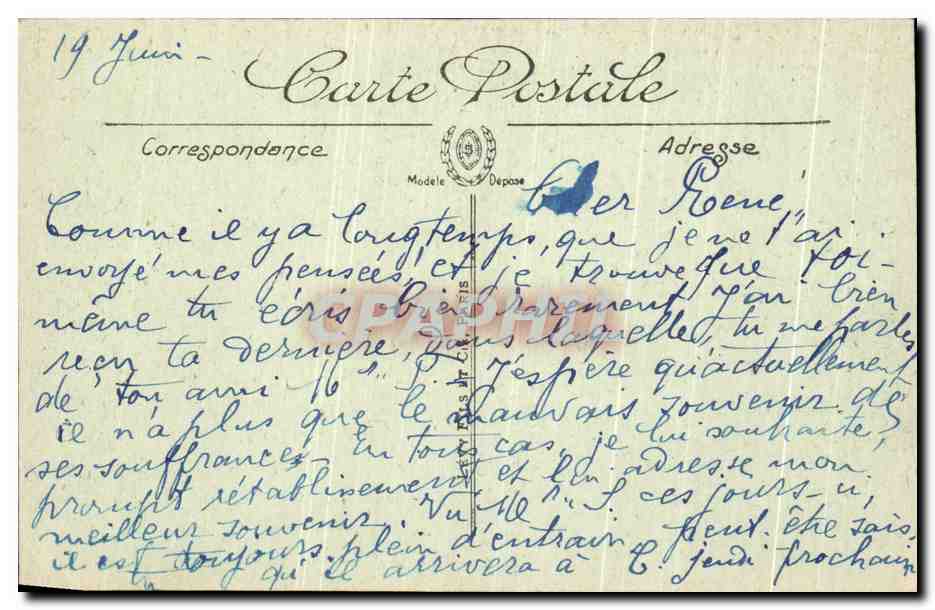 19 Juin -
Carte Postale
Correspondance
Adresse
Modèle Déposé
S
Cher René,
Comme il y a longtemps, que je ne t'ai
envoyé mes pensées, et je trouve que toi-
même tu écris bien rarement. J'ai bien
reçu ta dernière, dans laquelle, tu me parles
de ton ami Mr P. J'espère qu'actuellement
il n'a plus que le mauvais souvenir de
ses souffrances. En tous cas, je lui souhaite,
prompt rétablissement et lui adresse mon
meilleur souvenir. Vu Mr S ces jours-ci,
il est toujours plein d'entrain. Peut-être sais-
qu'il arrivera à T. jeudi prochain
PARIS
CPAPHIL